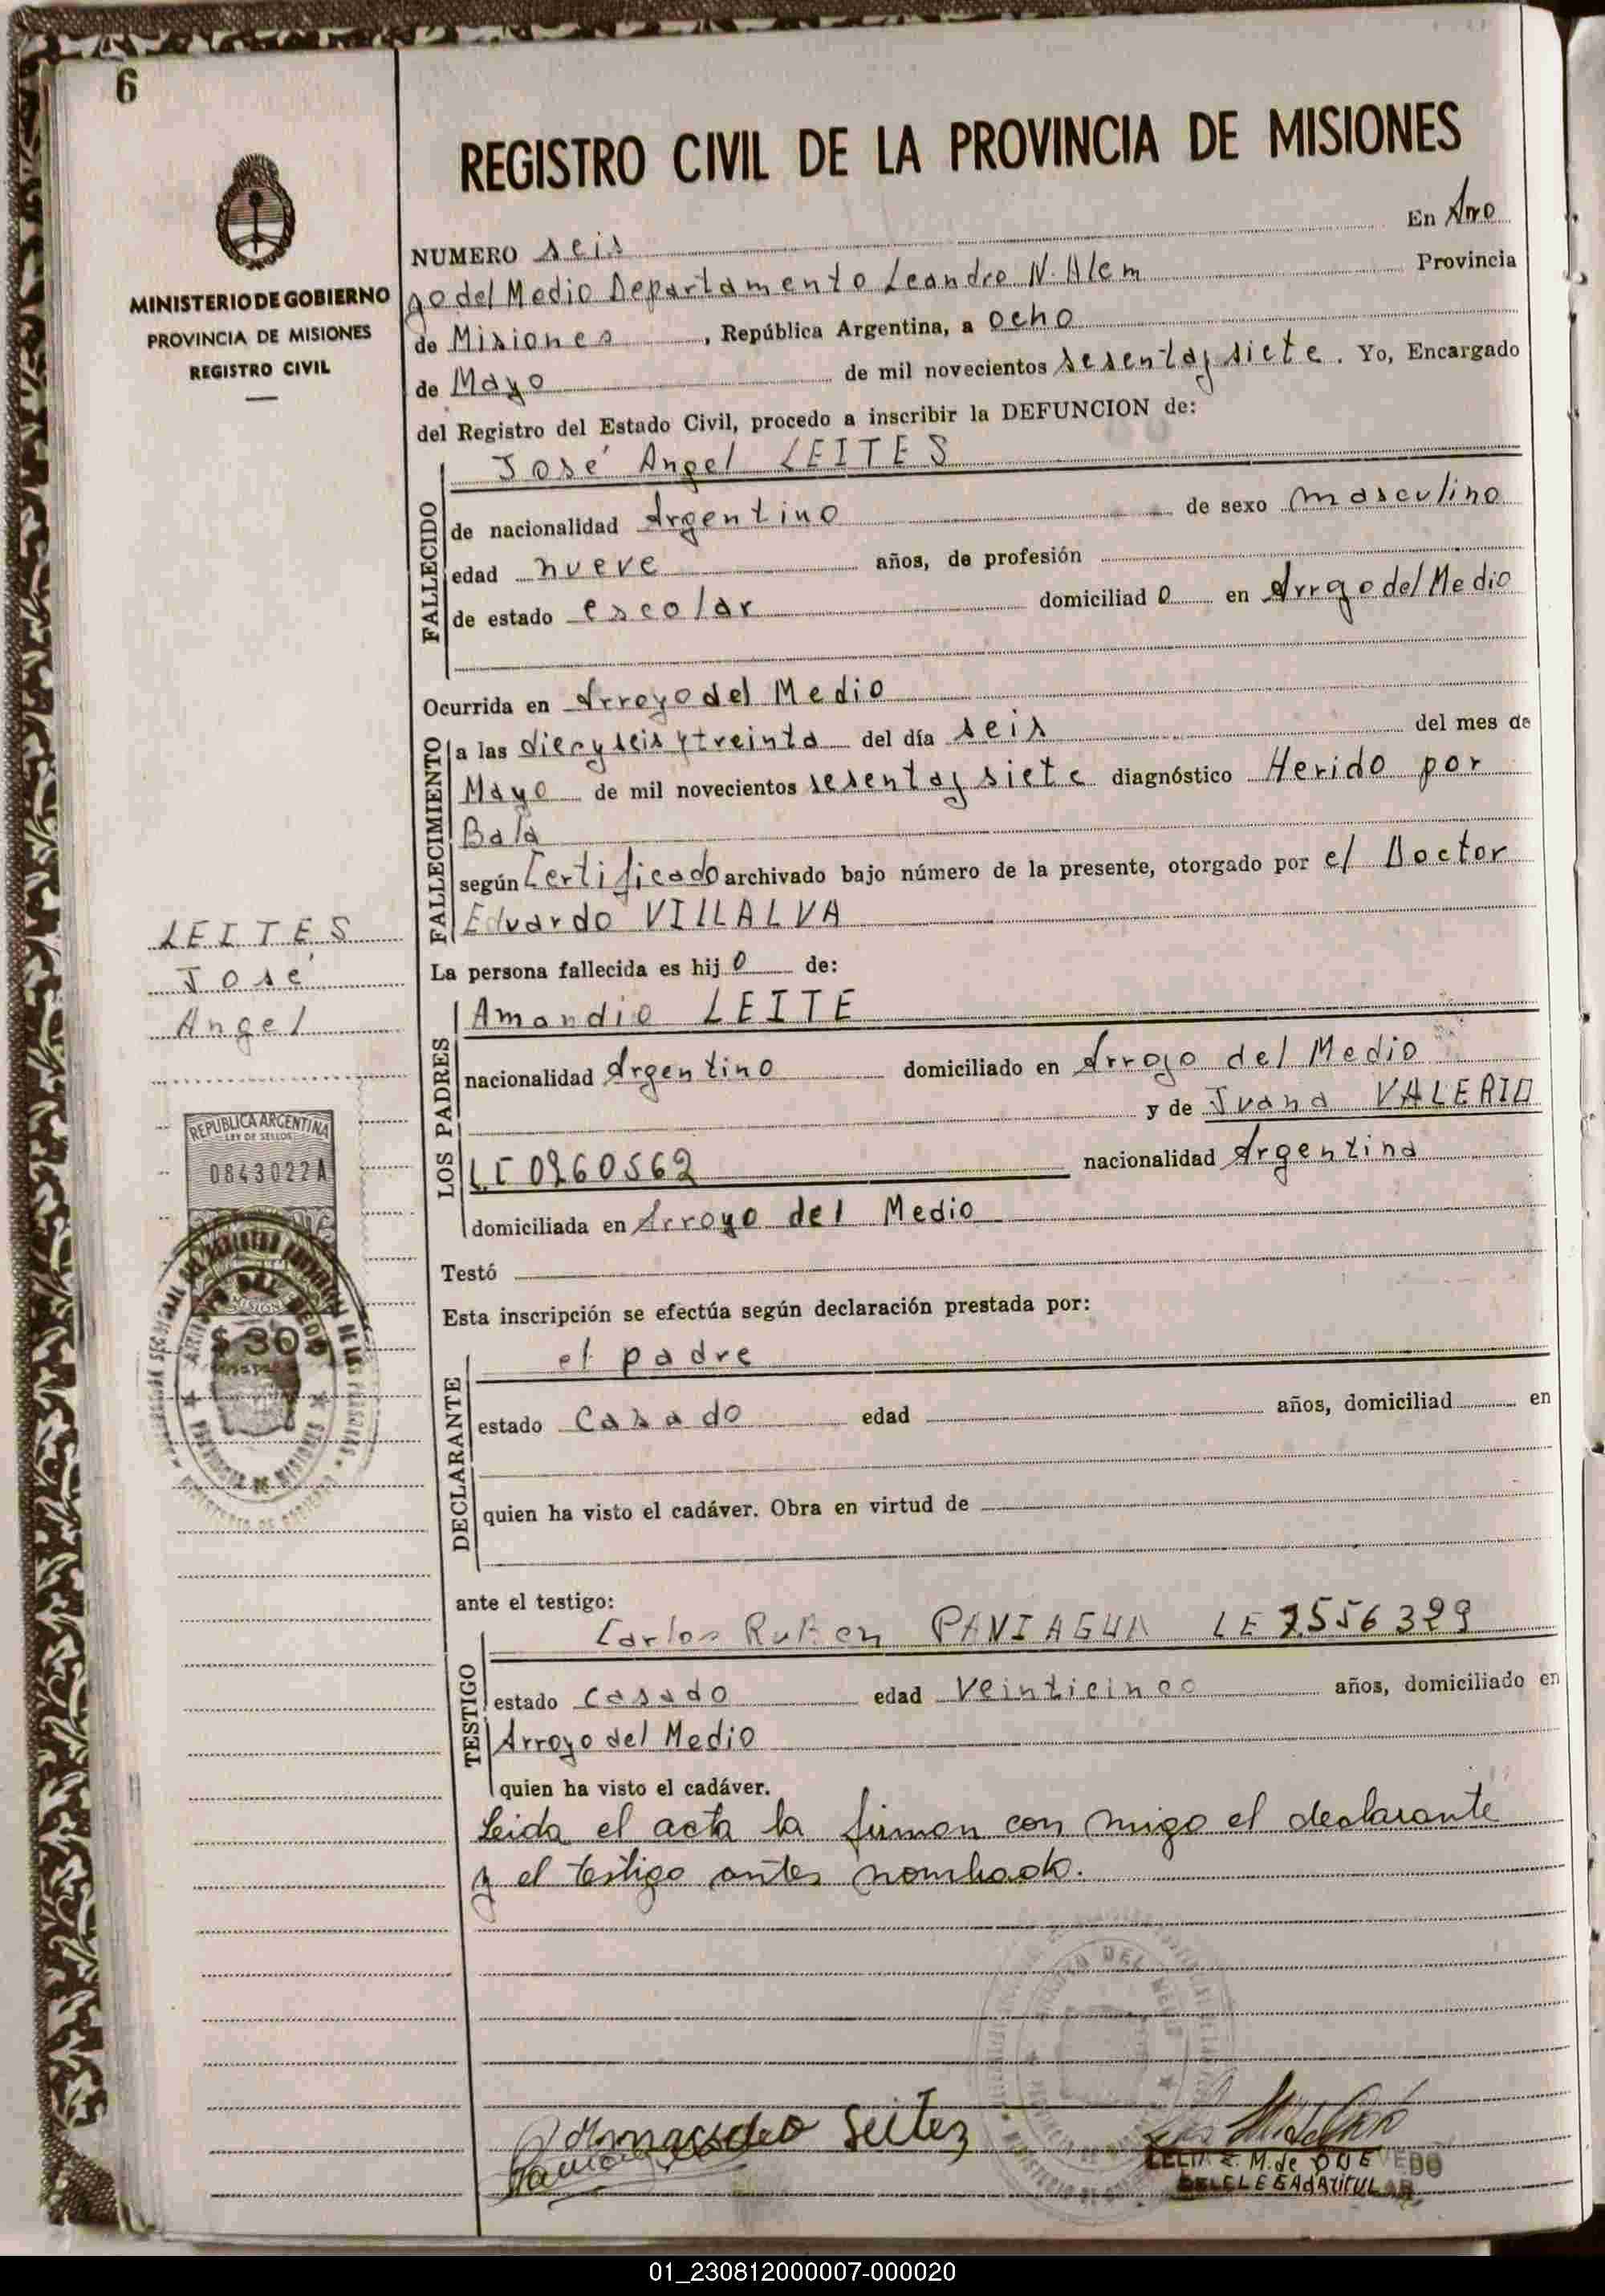 6
REGISTRO CIVIL DE LA PROVINCIA DE MISIONES
MINISTERIO DE GOBIERNO
PROVINCIA DE MISIONES
REGISTRO CIVIL
NUMERO seis En Arro
yo del Medio Departamento Leandro N. Alem Provincia
de Misiones, República Argentina, a ocho
de Mayo de mil novecientos sesenta y siete. Yo, Encargado
del Registro del Estado Civil, procedo a inscribir la DEFUNCION de:
FALLECIDO
José Angel LEITES
de nacionalidad Argentino de sexo masculino
edad nueve años, de profesión
de estado escolar domiciliad o en Arryo del Medio
Ocurrida en Arroyo del Medio
FALLECIMIENTO
a las diez y seis y treinta del día seis del mes de
Mayo de mil novecientos sesenta y siete diagnóstico Herido por
Bala
según Certificado archivado bajo número de la presente, otorgado por el Doctor
Eduardo VILLALVA
LEITES
José
Angel
La persona fallecida es hij o de:
LOS PADRES
Amandio LEITE
nacionalidad Argentino domiciliado en Arroyo del Medio
y de Juana VALERIO
LC 0260562 nacionalidad Argentina
domiciliada en Arroyo del Medio
REPUBLICA ARGENTINA
LEY DE SELLOS
0843022A
$ 30
Testó
Esta inscripción se efectúa según declaración prestada por:
DECLARANTE
el padre
estado Casado edad años, domiciliad en
quien ha visto el cadáver. Obra en virtud de
ante el testigo:
TESTIGO
Carlos Ruben PANIAGUA LE 7556329
estado casado edad Veinticinco años, domiciliado en
Arroyo del Medio
quien ha visto el cadáver.
Leida el acta la firman con migo el declarante
y el testigo antes nombrado.
Leites
M. de
01_230812000007-000020